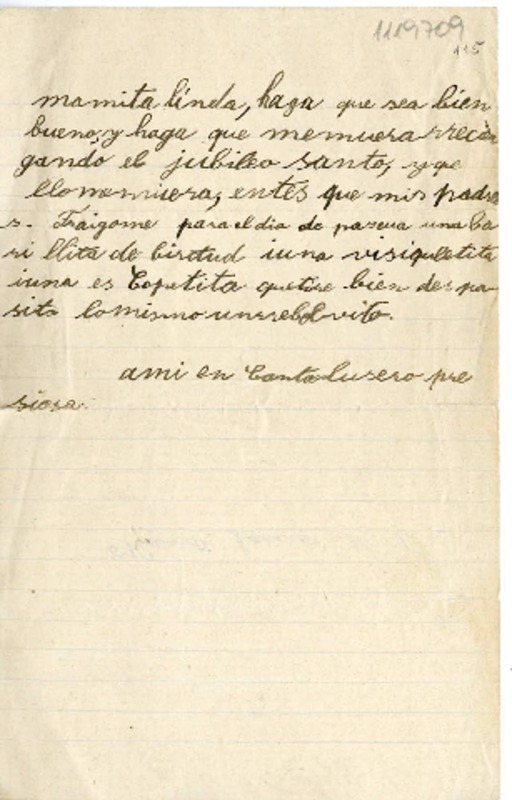 1119709
115
mamita linda, haga que sea bien
bueno, y haga que memuera rrecien
gando el jubileo santo, y qe
llomemuera, entes que mis padre
s. Traigame para el dia de pascua una ba
ri llita de birtud iuna visiquletita
iuna es Copetita quetire bien des pa
sito lo mismo unrrebolvito.
ami en Canta lusero pre
siosa.